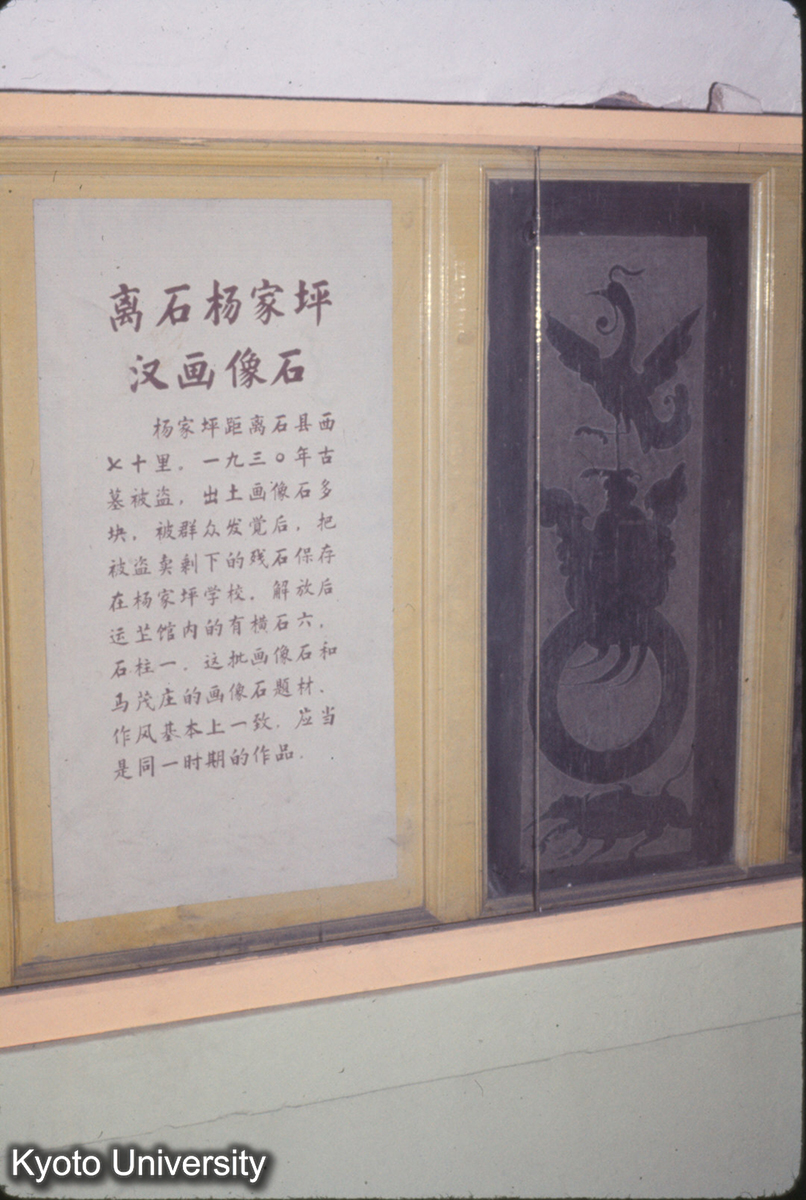 离石杨家坪
汉画像石
杨家坪距离石县西
七十里，一九三〇年古
墓被盗，出土画像石多
块，被群众发觉后，把
被盗卖剩下的残石保存
在杨家坪学校，解放后
运至馆内的有横石六，
石柱一，这批画像石和
马茂庄的画像石题材、
作风基本上一致，应当
是同一时期的作品．
Kyoto University